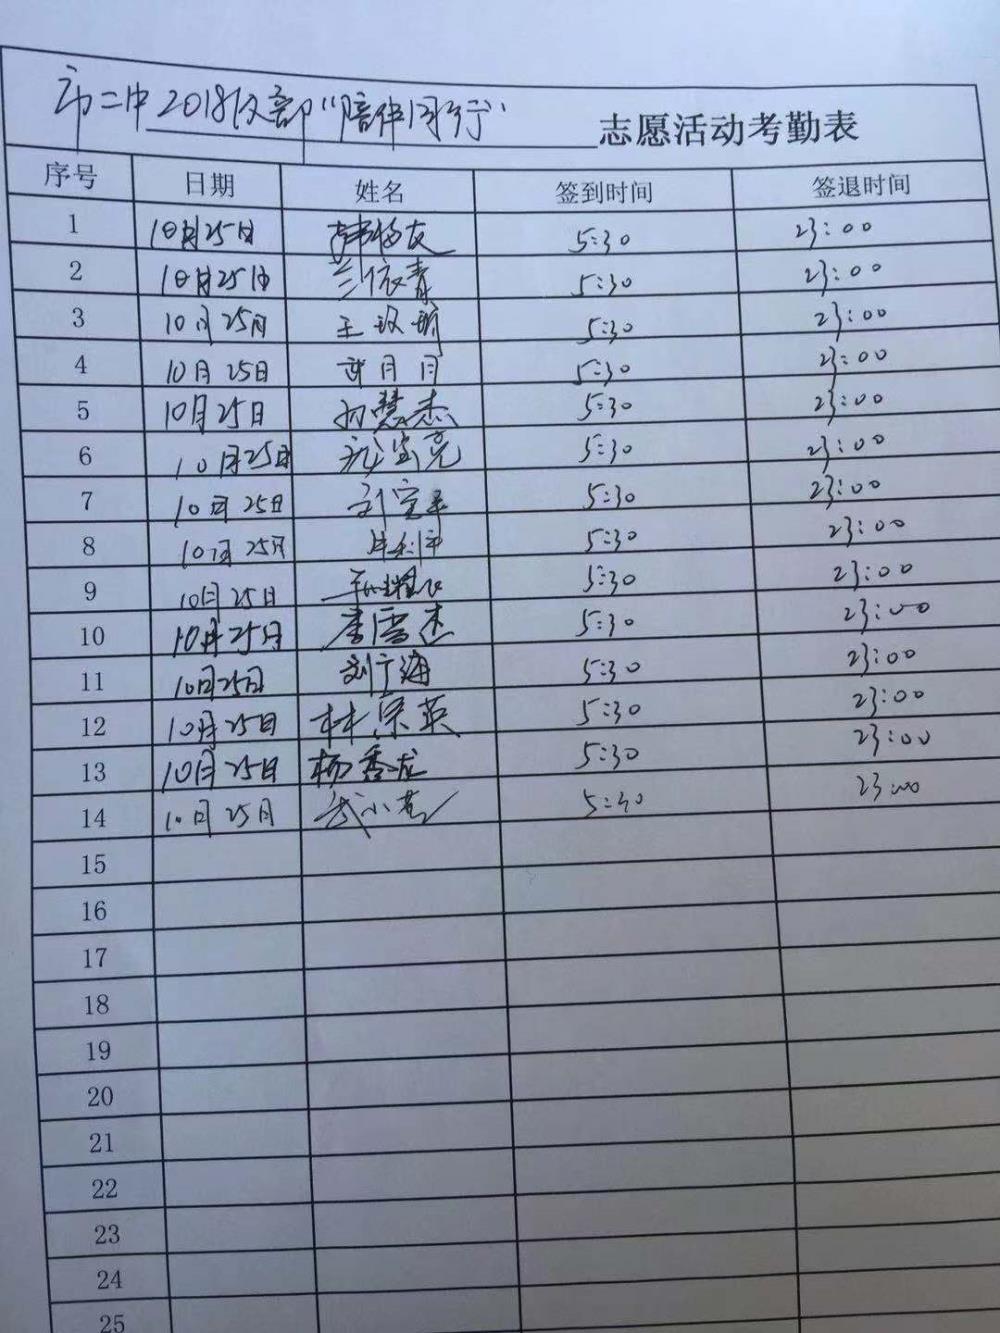 市二中2018级部“陪伴同行”志愿活动考勤表
序号 日期 姓名 签到时间 签退时间
1 10月25日 5:30 23:00
2 10月25日 兰依青 5:30 23:00
3 10月25日 王 5:30 23:00
4 10月25日 武月月 5:30 23:00
5 10月25日 孙慧杰 5:30 23:00
6 10月25日 庞宝亮 5:30 23:00
7 10月25日 刘宝平 5:30 23:00
8 10月25日 5:30 23:00
9 10月25日 5:30 23:00
10 10月25日 李雪杰 5:30 23:00
11 10月25日 刘广海 5:30 23:00
12 10月25日 林泉英 5:30 23:00
13 10月25日 杨香龙 5:30 23:00
14 10月25日 武小 5:30 23:00
15
16
17
18
19
20
21
22
23
24
25